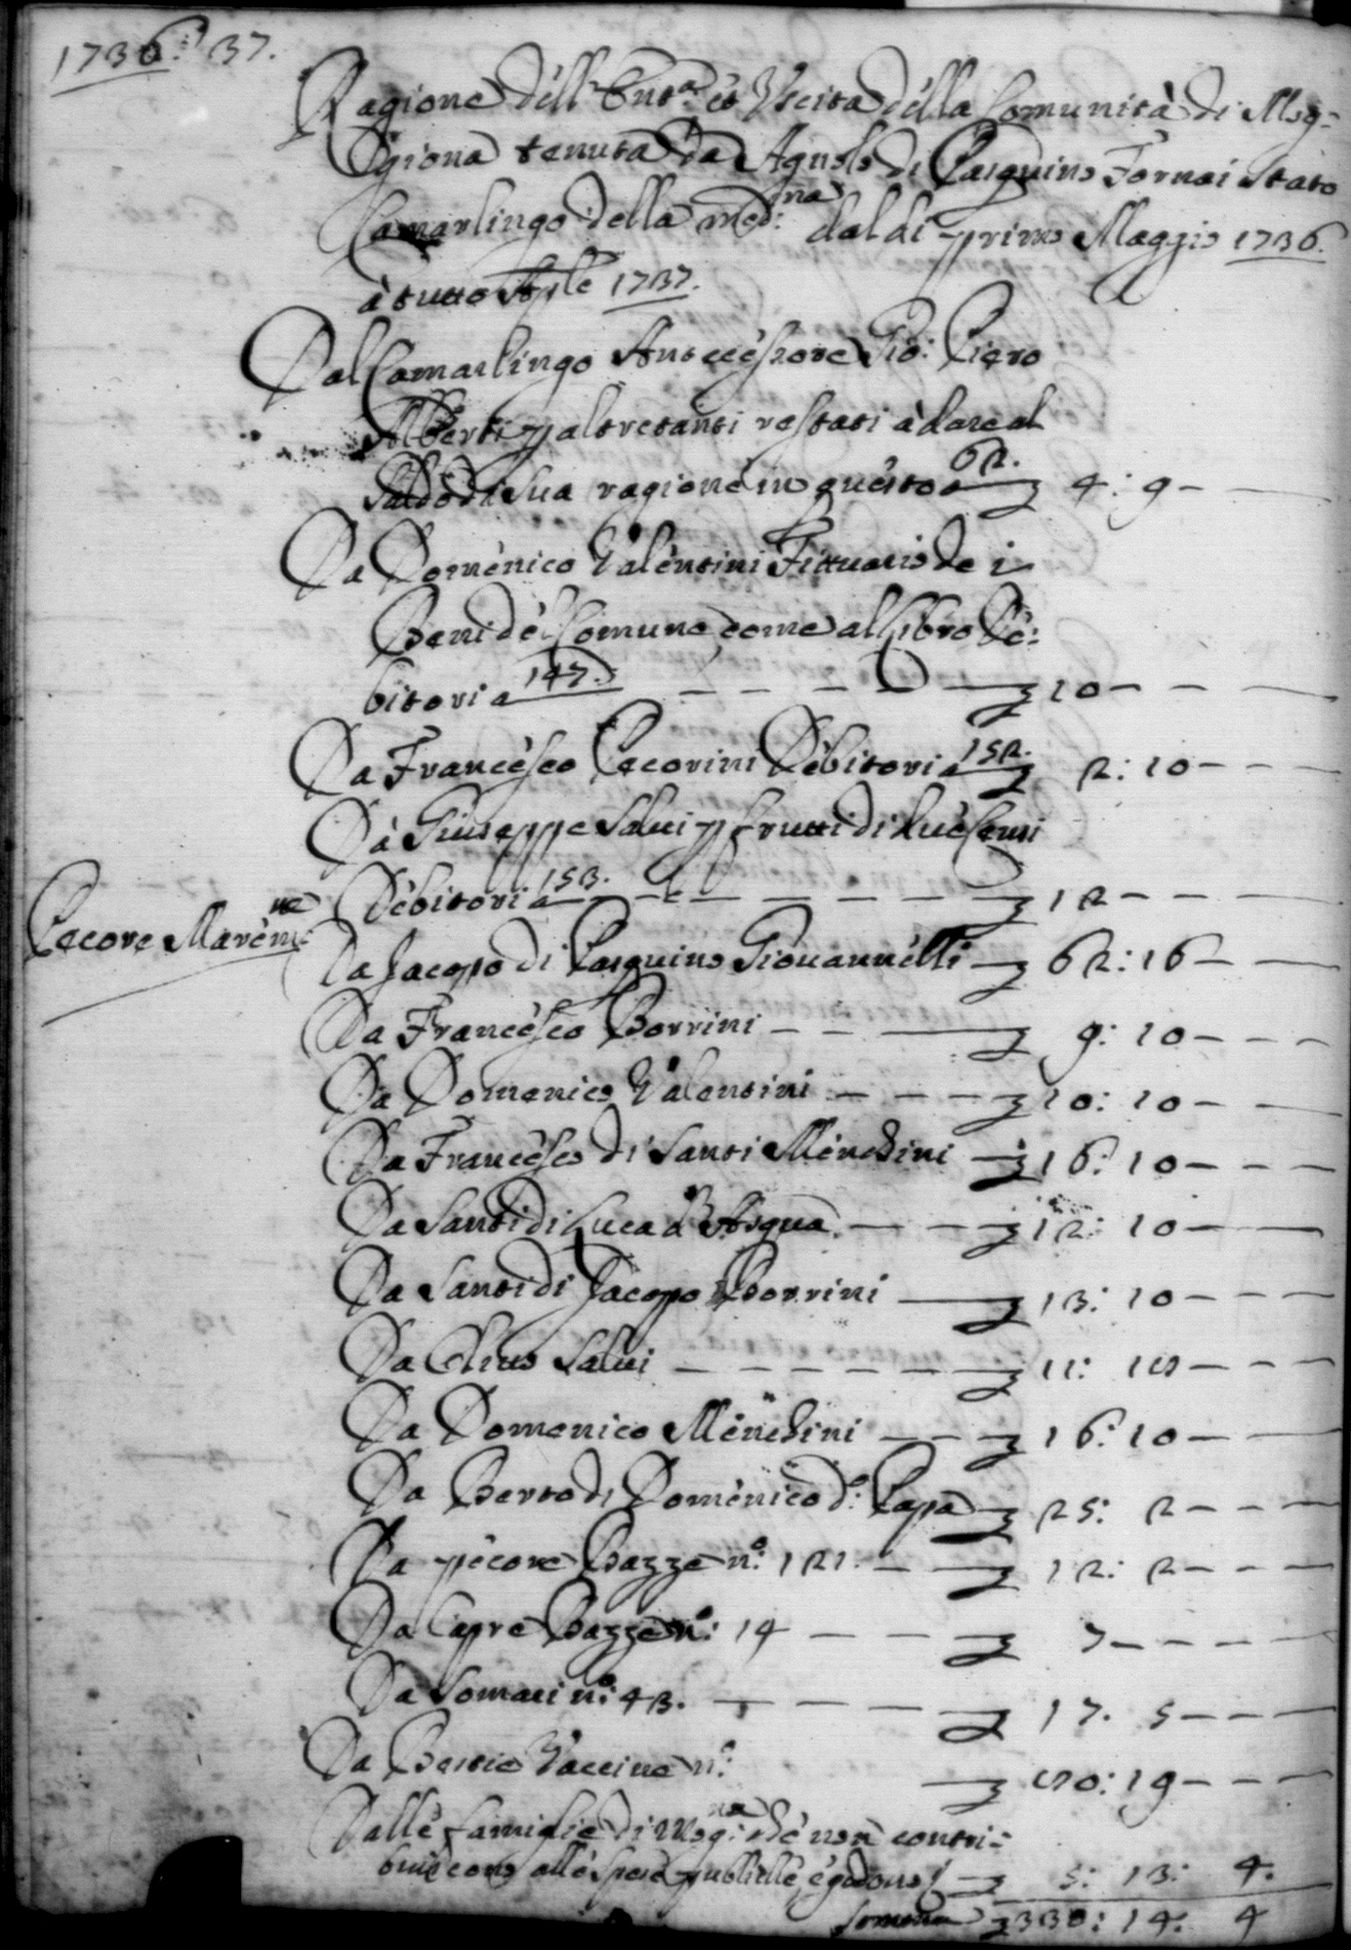 1736: 37.
Ragione dell'Ent.ª et Uscita della Comunità di Mog-
giona tenuta da Agnolo di Pasquino Fornai stato
Camarlingo della med:na dal dì primo Maggio 1736.
à tutto Aple 1737.
Dal Camarlingo Antecessore Gio: Piero
Alberti p altretanti restati à dare al
Saldo di sua ragione in questo a 62. 4: 9
Da Domenico Valentini Fittuario de i
Beni del Comune come al Libro De:
bitori a 147. 10
Da Francesco Pecorini Debitori a 152. 2: 10
Da Giuseppe Salvi p frutti di due Censi
Debitori a 153. 12
Pecore Marem:ne
Da Jacopo di Pasquino Giovannelli 62: 16
Da Francesco Borrini 9: 10
Da Domenico Valentini 10: 10
Da Francesco di Santi Menchini 16: 10
Da Santi di Luca d'Asqua 12: 10
Da Santi di Jacopo Borrini 13: 10
Da Olivo Salvi 11: 10
Da Domenico Menchini 16: 10
Da Berto di Domenico d.º Papa 25: 2
Da pecore Bazze n.º 121. 12: 2
Da Capre Bazze n.º: 14 7
Da Somari n.º 43. 17. 5
Da Bestie Vaccine n.º 19
Dalle famiglie di Mog:na che non contri:
buiscono alle spese publiche e godono 5: 13: 4.
Somma 330: 14: 4